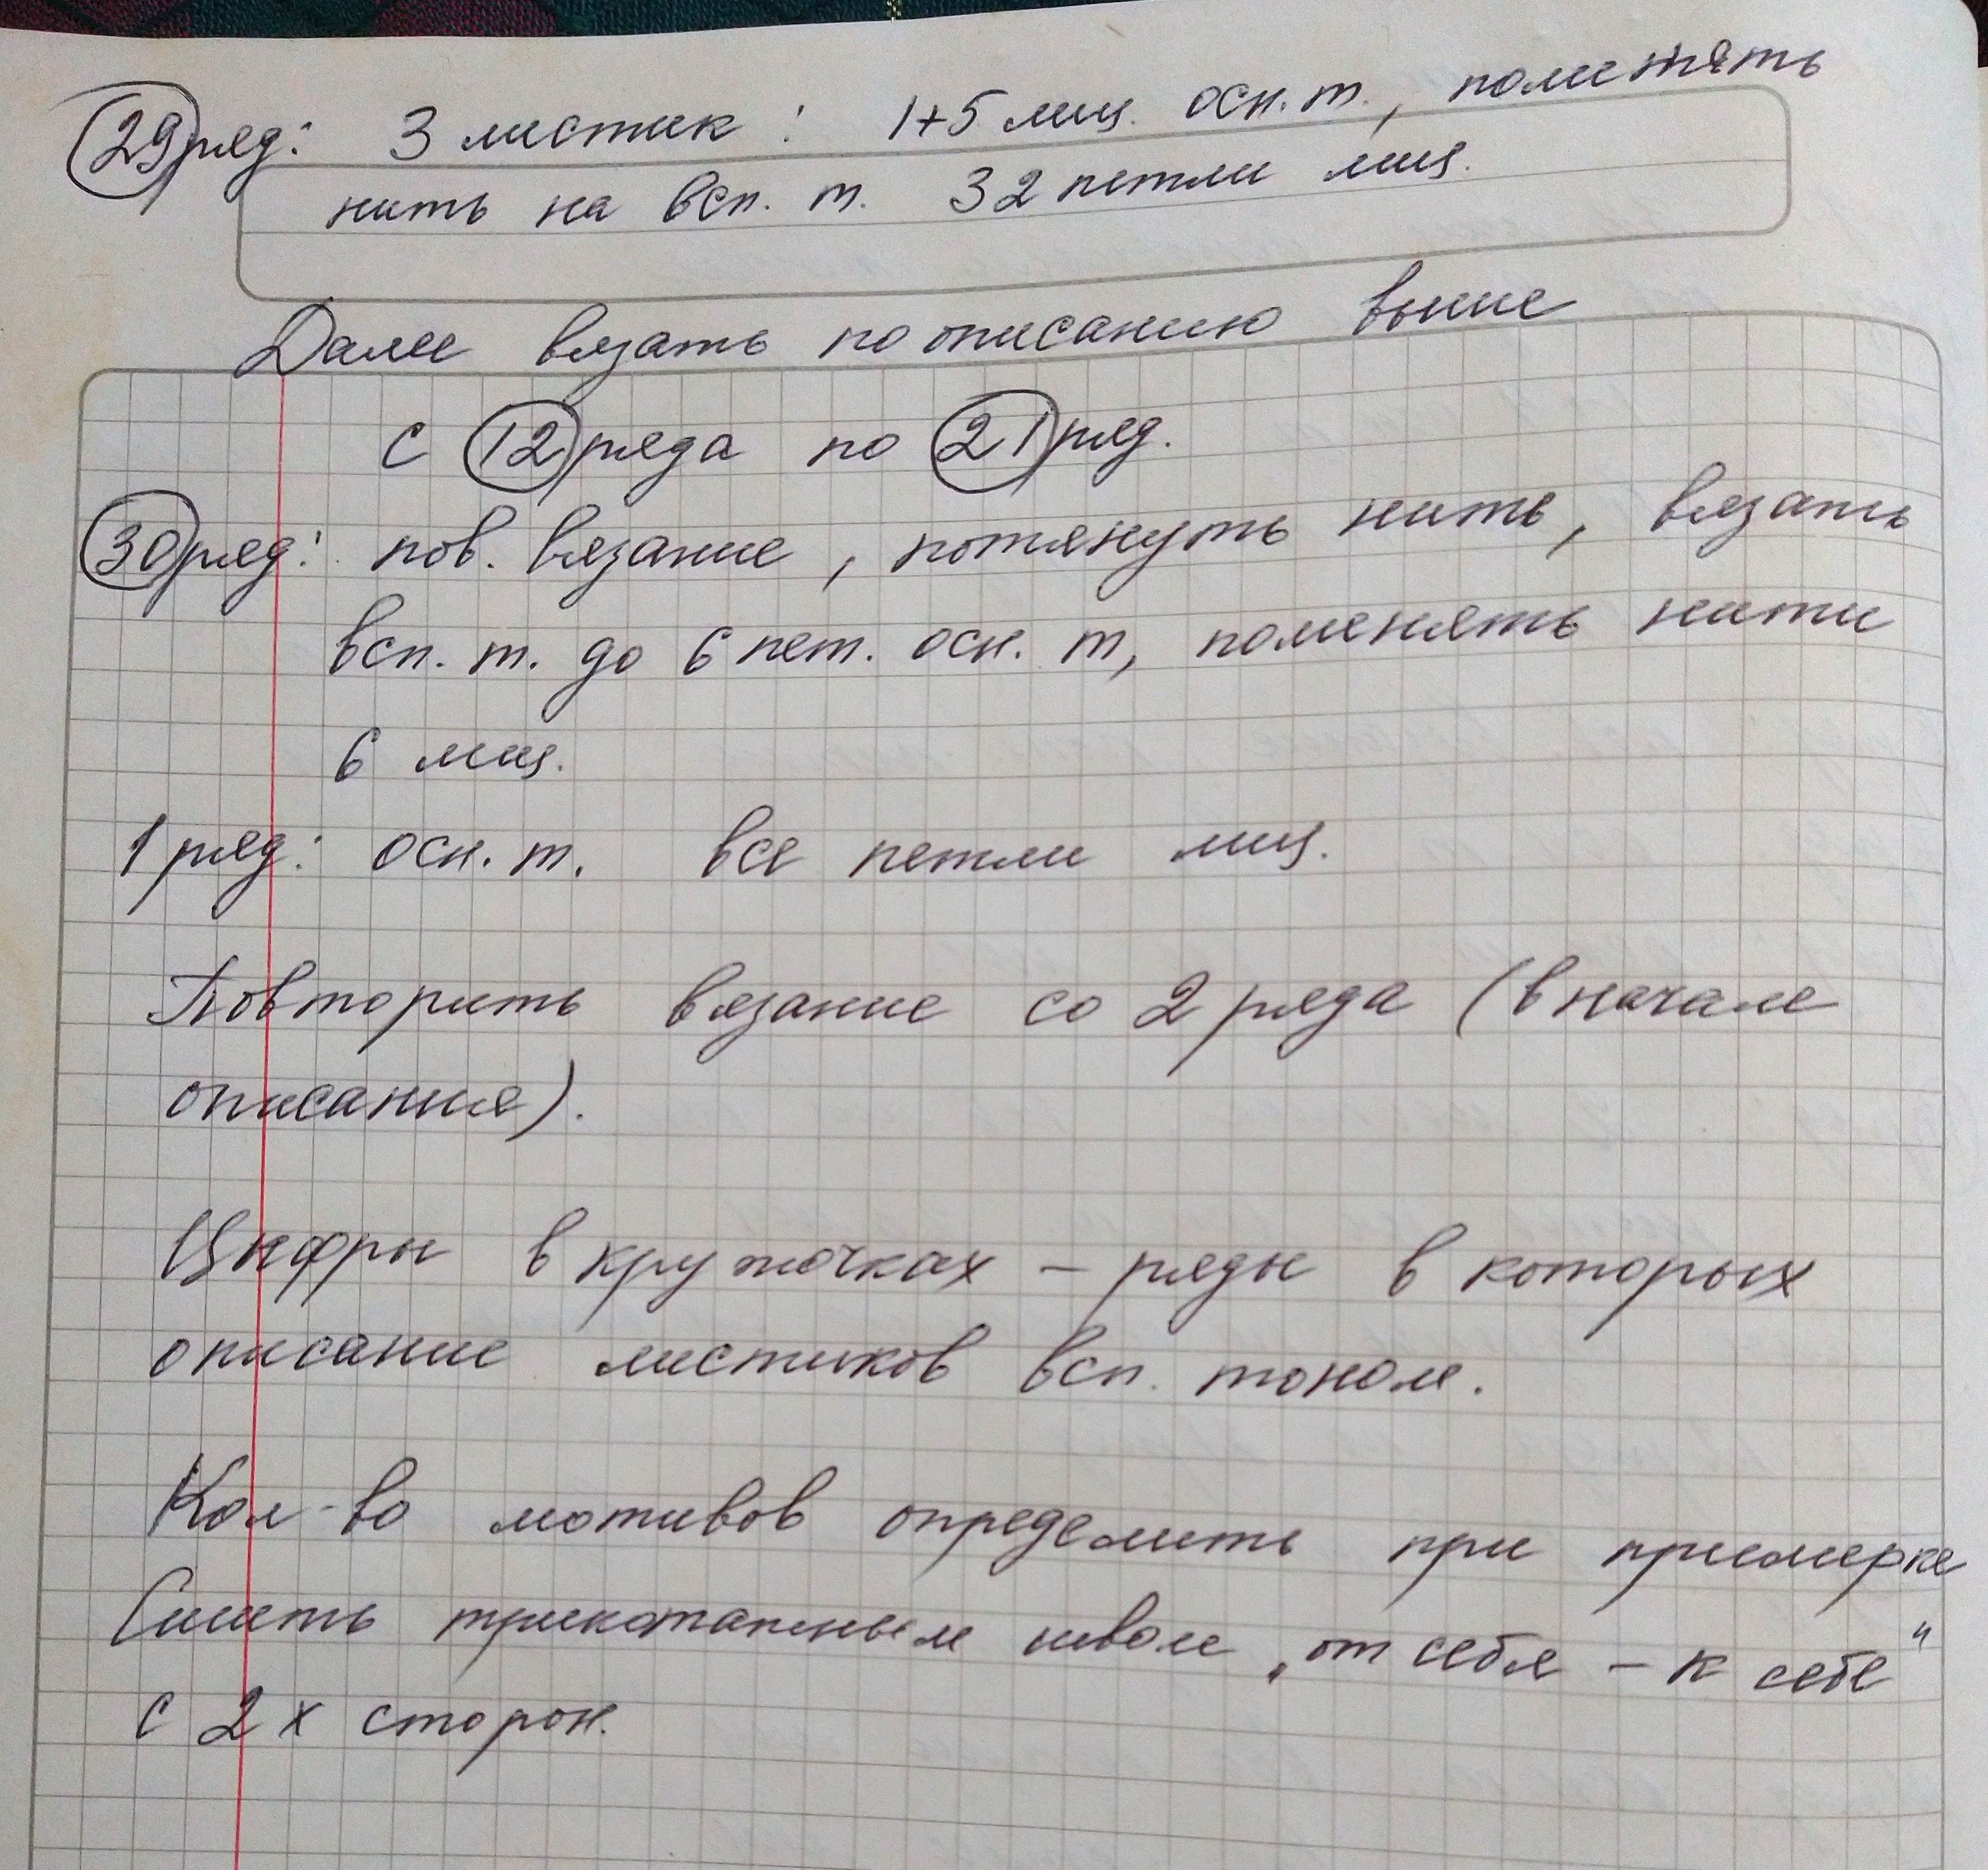 29 ряд: 3 листик: 1+5 лиц. осн. т., поменять
нить на всп. т. 32 петли лиц.
Далее вязать по описанию выше
с 12 ряда по 21 ряд.
30 ряд: пов. вязание, потянуть нить, вязать
всп. т. до 6 пет. осн. т, поменять нити
6 лиц.
1 ряд: осн. т. все петли лиц.
Повторить вязание со 2 ряда (в начале
описания).
Цифры в кружочках – ряды в которых
описание листиков всп. тоном.
Кол-во мотивов определить при примерке
Сшить трикотажным швом „от себя – к себе"
с 2х сторон.